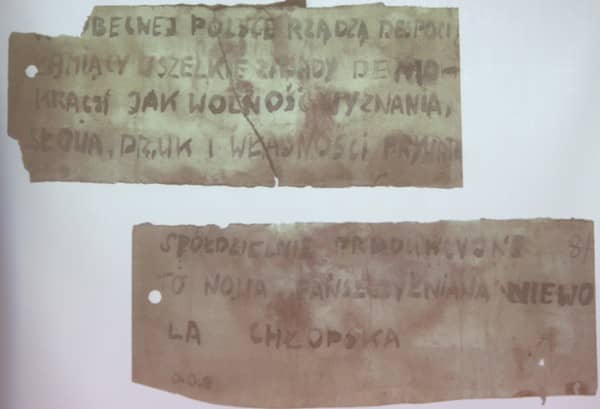 BECNEJ POLSCE RZĄDZĄ DESPOCI
ŁAMIĄCY WSZELKIE ZASADY DEMO-
KRACJI JAK WOLNOŚĆ WYZNANIA,
SŁOWA, DRUK I WŁASNOŚCI PRYWATN
SPÓŁDZIELNIE PRODUKCYJNE 8/
TO NOWA PAŃSZCZYŹNIANA NIEWO
LA CHŁOPSKA